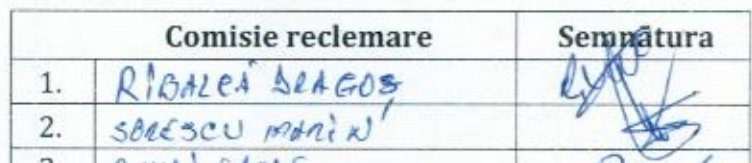 Comisie reclemare Semnătura
1. RÎBALCĂ DRAGOȘ
2. SORESCU MARIN